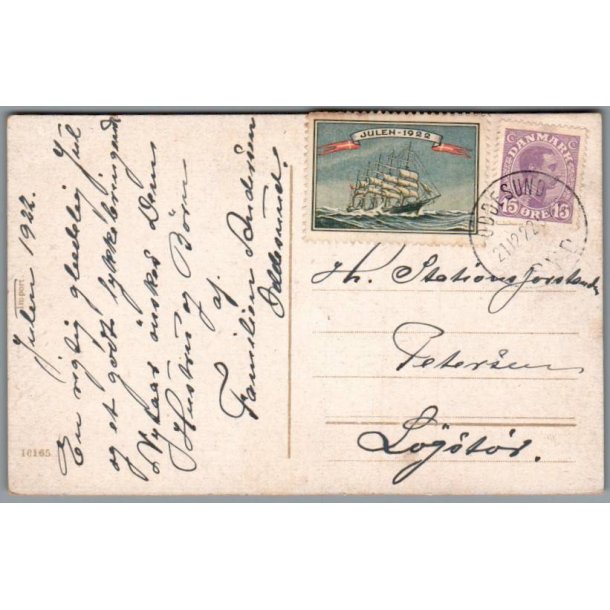 Julen 1922.
En rigtig glædelig Jul
og et godt lykkebringende
Nytaar ønskes Dem
Hustru og Børn
af
Familien
Oddesund.
JULEN · 1922
DANMARK
15 ØRE 15
ODDESUND
21.12.22
Hr. Stationsforstander
Petersen
Løgstør.
import
16165